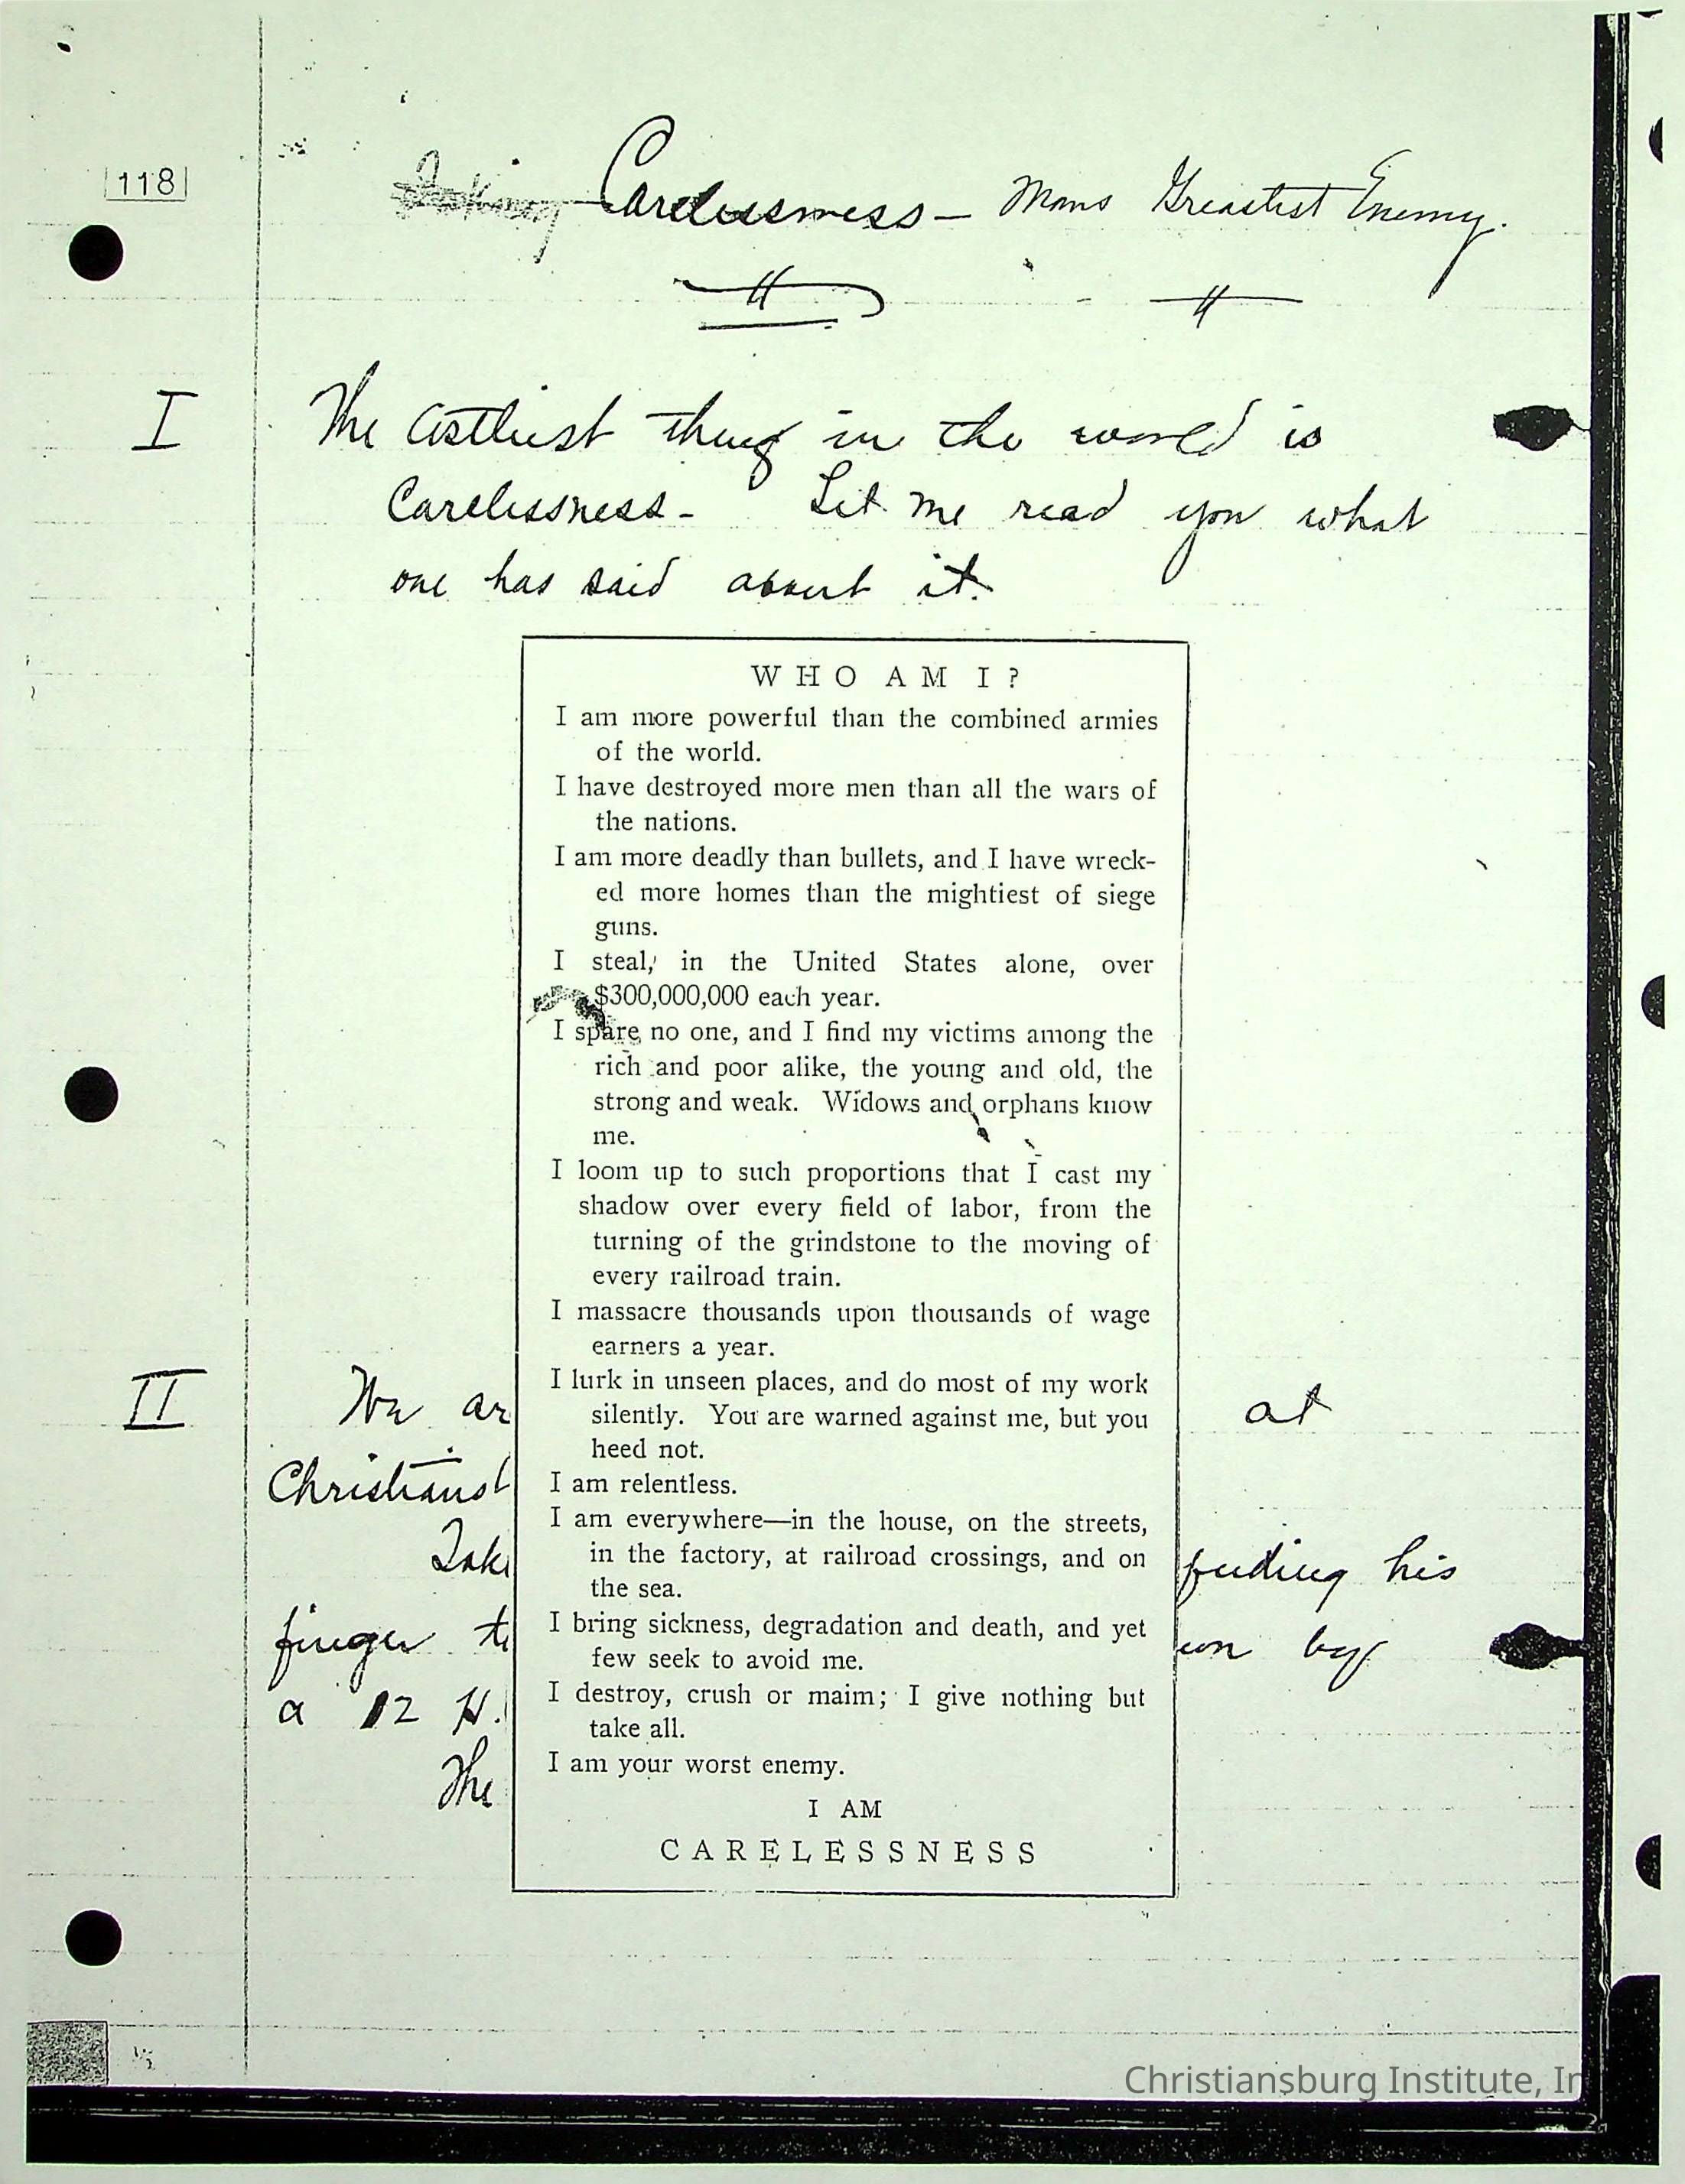 118
Carelessness - Mans Greatest Enemy.
I The Costliest thing in the world is
Carelessness - Let me read you what
one has said about it.
WHO AM I?
I am more powerful than the combined armies
of the world.
I have destroyed more men than all the wars of
the nations.
I am more deadly than bullets, and I have wreck-
ed more homes than the mightiest of siege
guns.
I steal, in the United States alone, over
$300,000,000 each year.
I spare no one, and I find my victims among the
rich and poor alike, the young and old, the
strong and weak. Widows and orphans know
me.
I loom up to such proportions that I cast my
shadow over every field of labor, from the
turning of the grindstone to the moving of
every railroad train.
I massacre thousands upon thousands of wage
earners a year.
I lurk in unseen places, and do most of my work
silently. You are warned against me, but you
heed not.
I am relentless.
I am everywhere—in the house, on the streets,
in the factory, at railroad crossings, and on
the sea.
I bring sickness, degradation and death, and yet
few seek to avoid me.
I destroy, crush or maim; I give nothing but
take all.
I am your worst enemy.
I AM
CARELESSNESS
II We ar at
Christians
Take feeding his
finger by
a 12 H.
The
Christiansburg Institute, In